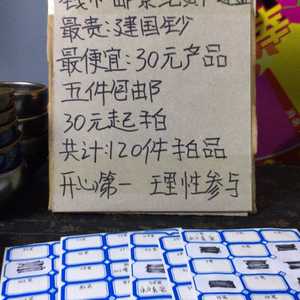 最贵:建国钞
最便宜:30元产品
五件包邮
30元起拍
共计:120件拍品
开心第一 理性参与